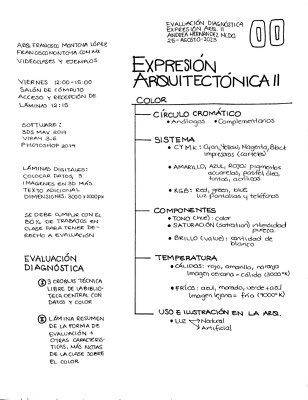 EVALUACIÓN DIAGNÓSTICA
EXPRESIÓN ARQ. II
ANDREA HERNÁNDEZ
25-AGOSTO-2023
00
ARQ. FRANCISCO MONTOYA LÓPEZ
FRANCISCOMONTOYA.COM.MX
VIDEOCLASES Y EJEMPLOS
VIERNES 12:00-15:00
SALÓN DE CÓMPUTO
ACCESO Y RECEPCIÓN DE
LÁMINAS 12:15
SOFTWARE:
3DS MAX 2019
VRAY 3.6
PHOTOSHOP 2019
LÁMINAS DIGITALES:
COLOCAR DATOS, 3
IMÁGENES EN 3D MÁS
TEXTO ADICIONAL
DIMENSIONES: 3000 x 1000px
SE DEBE CUMPLIR CON EL
80% DE TRABAJOS EN
CLASE PARA TENER DE-
RECHO A EVALUACIÓN
EVALUACIÓN
DIAGNÓSTICA
① 3 CROQUIS TÉCNICA
LIBRE DE LA BIBLIO-
TECA CENTRAL CON
DATOS Y COLOR
② LÁMINA RESUMEN
DE LA FORMA DE
EVALUACIÓN +
OTRAS CARACTE-
RÍSTICAS, MÁS NOTAS
DE LA CLASE SOBRE
EL COLOR
EXPRESIÓN
ARQUITECTÓNICA II
COLOR
CÍRCULO CROMÁTICO
• Análogos • Complementarios
SISTEMA
• CYMK: Cyan, Yellow, Magenta, Black
impresoras (carteles)
• AMARILLO, AZUL, ROJO: pigmentos
acuarelas, pastel, óleo,
tintas, acrílicos
• RGB: Red, green, blue
luz pantallas y teléfonos
COMPONENTES
• TONO (hue): color
• SATURACIÓN (saturation) intensidad
pureza
• BRILLO (value): cantidad de
blanco
TEMPERATURA
• CÁLIDOS: rojo, amarillo, naranja
Imagen cercana = cálido (3000°K)
• FRÍOS: azul, morado, verde + azul
Imagen lejana = fría (9000°K)
USO E ILUSTRACIÓN EN LA ARQ.
• LUZ Natural
Artificial